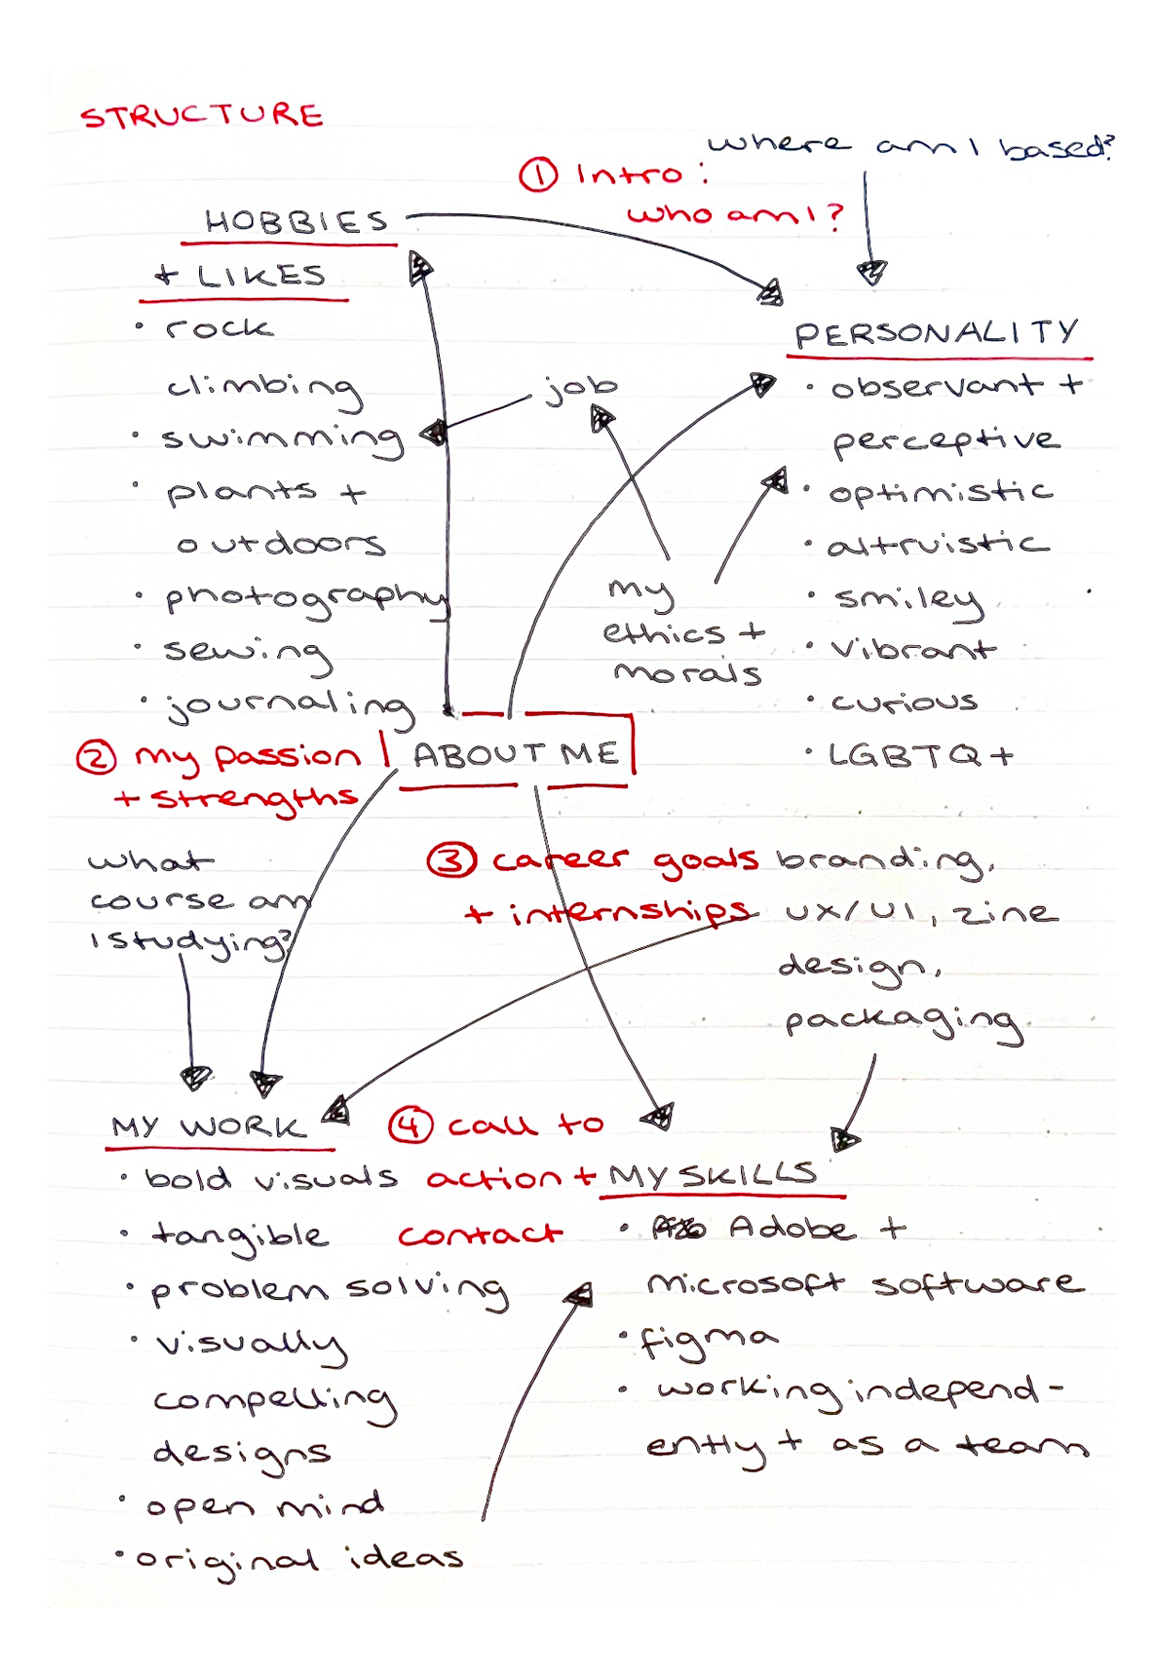 STRUCTURE
where am I based?
① Intro:
who am I?
HOBBIES
+ LIKES
• rock
climbing
• swimming
• plants +
outdoors
• photography
• sewing
• journaling
job
PERSONALITY
• observant +
perceptive
• optimistic
• altruistic
• smiley
• vibrant
• curious
• LGBTQ+
my
ethics +
morals
② my passion
+ strengths
ABOUT ME
what
course am
I studying?
③ career goals
+ internships
branding,
UX/UI, zine
design,
packaging
MY WORK
• bold visuals
• tangible
• problem solving
• visually
compelling
designs
• open mind
• original ideas
④ call to
action +
contact
MY SKILLS
• Adobe +
microsoft software
• figma
• working independ-
ently + as a team